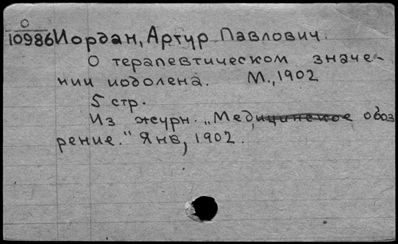 О
10986 Иордан, Артур Павлович.
О терапевтическом значе-
нии иодолена. М., 1902
5 стр.
Из журн. „Медицинское обоз
рение." Янв, 1902.